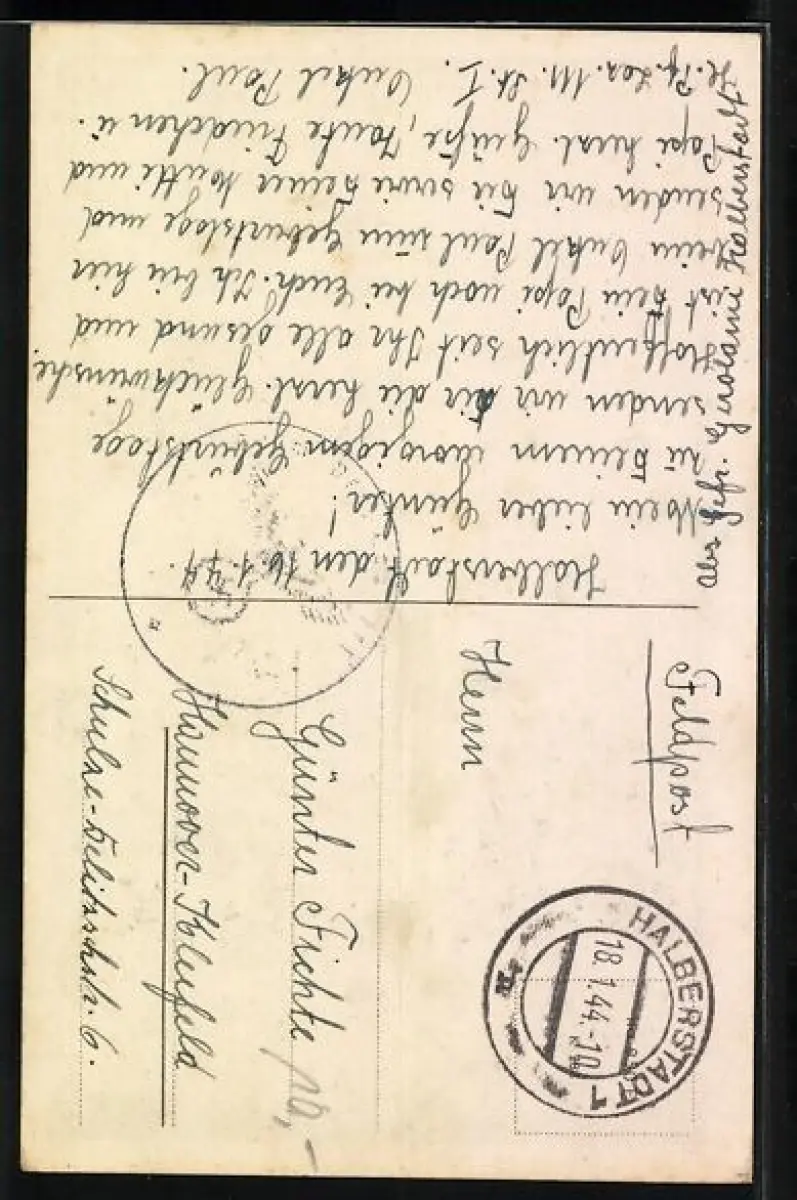 Halberstadt den 16.1.44.
Mein lieber Günter!
zu Deinem Geburtstage
senden wir Dir die herzl. Glückwünsche.
Hoffentlich seit Ihr alle gesund und
ist Dein Papi noch bei Euch. Ich bin hier
beim Onkel Paul zum Geburtstage und
senden wir Dir sowie Deiner Mutti und
Papi herzl. Grüße, Tante Friedchen u.
Onkel Paul.
Halberstadt
Feldpost
Herrn
Günter Fichte
Hannover-Kleefeld
Schulze-Delitzschstr. 6.
10,-
HALBERSTADT 1
18.1.44.-10